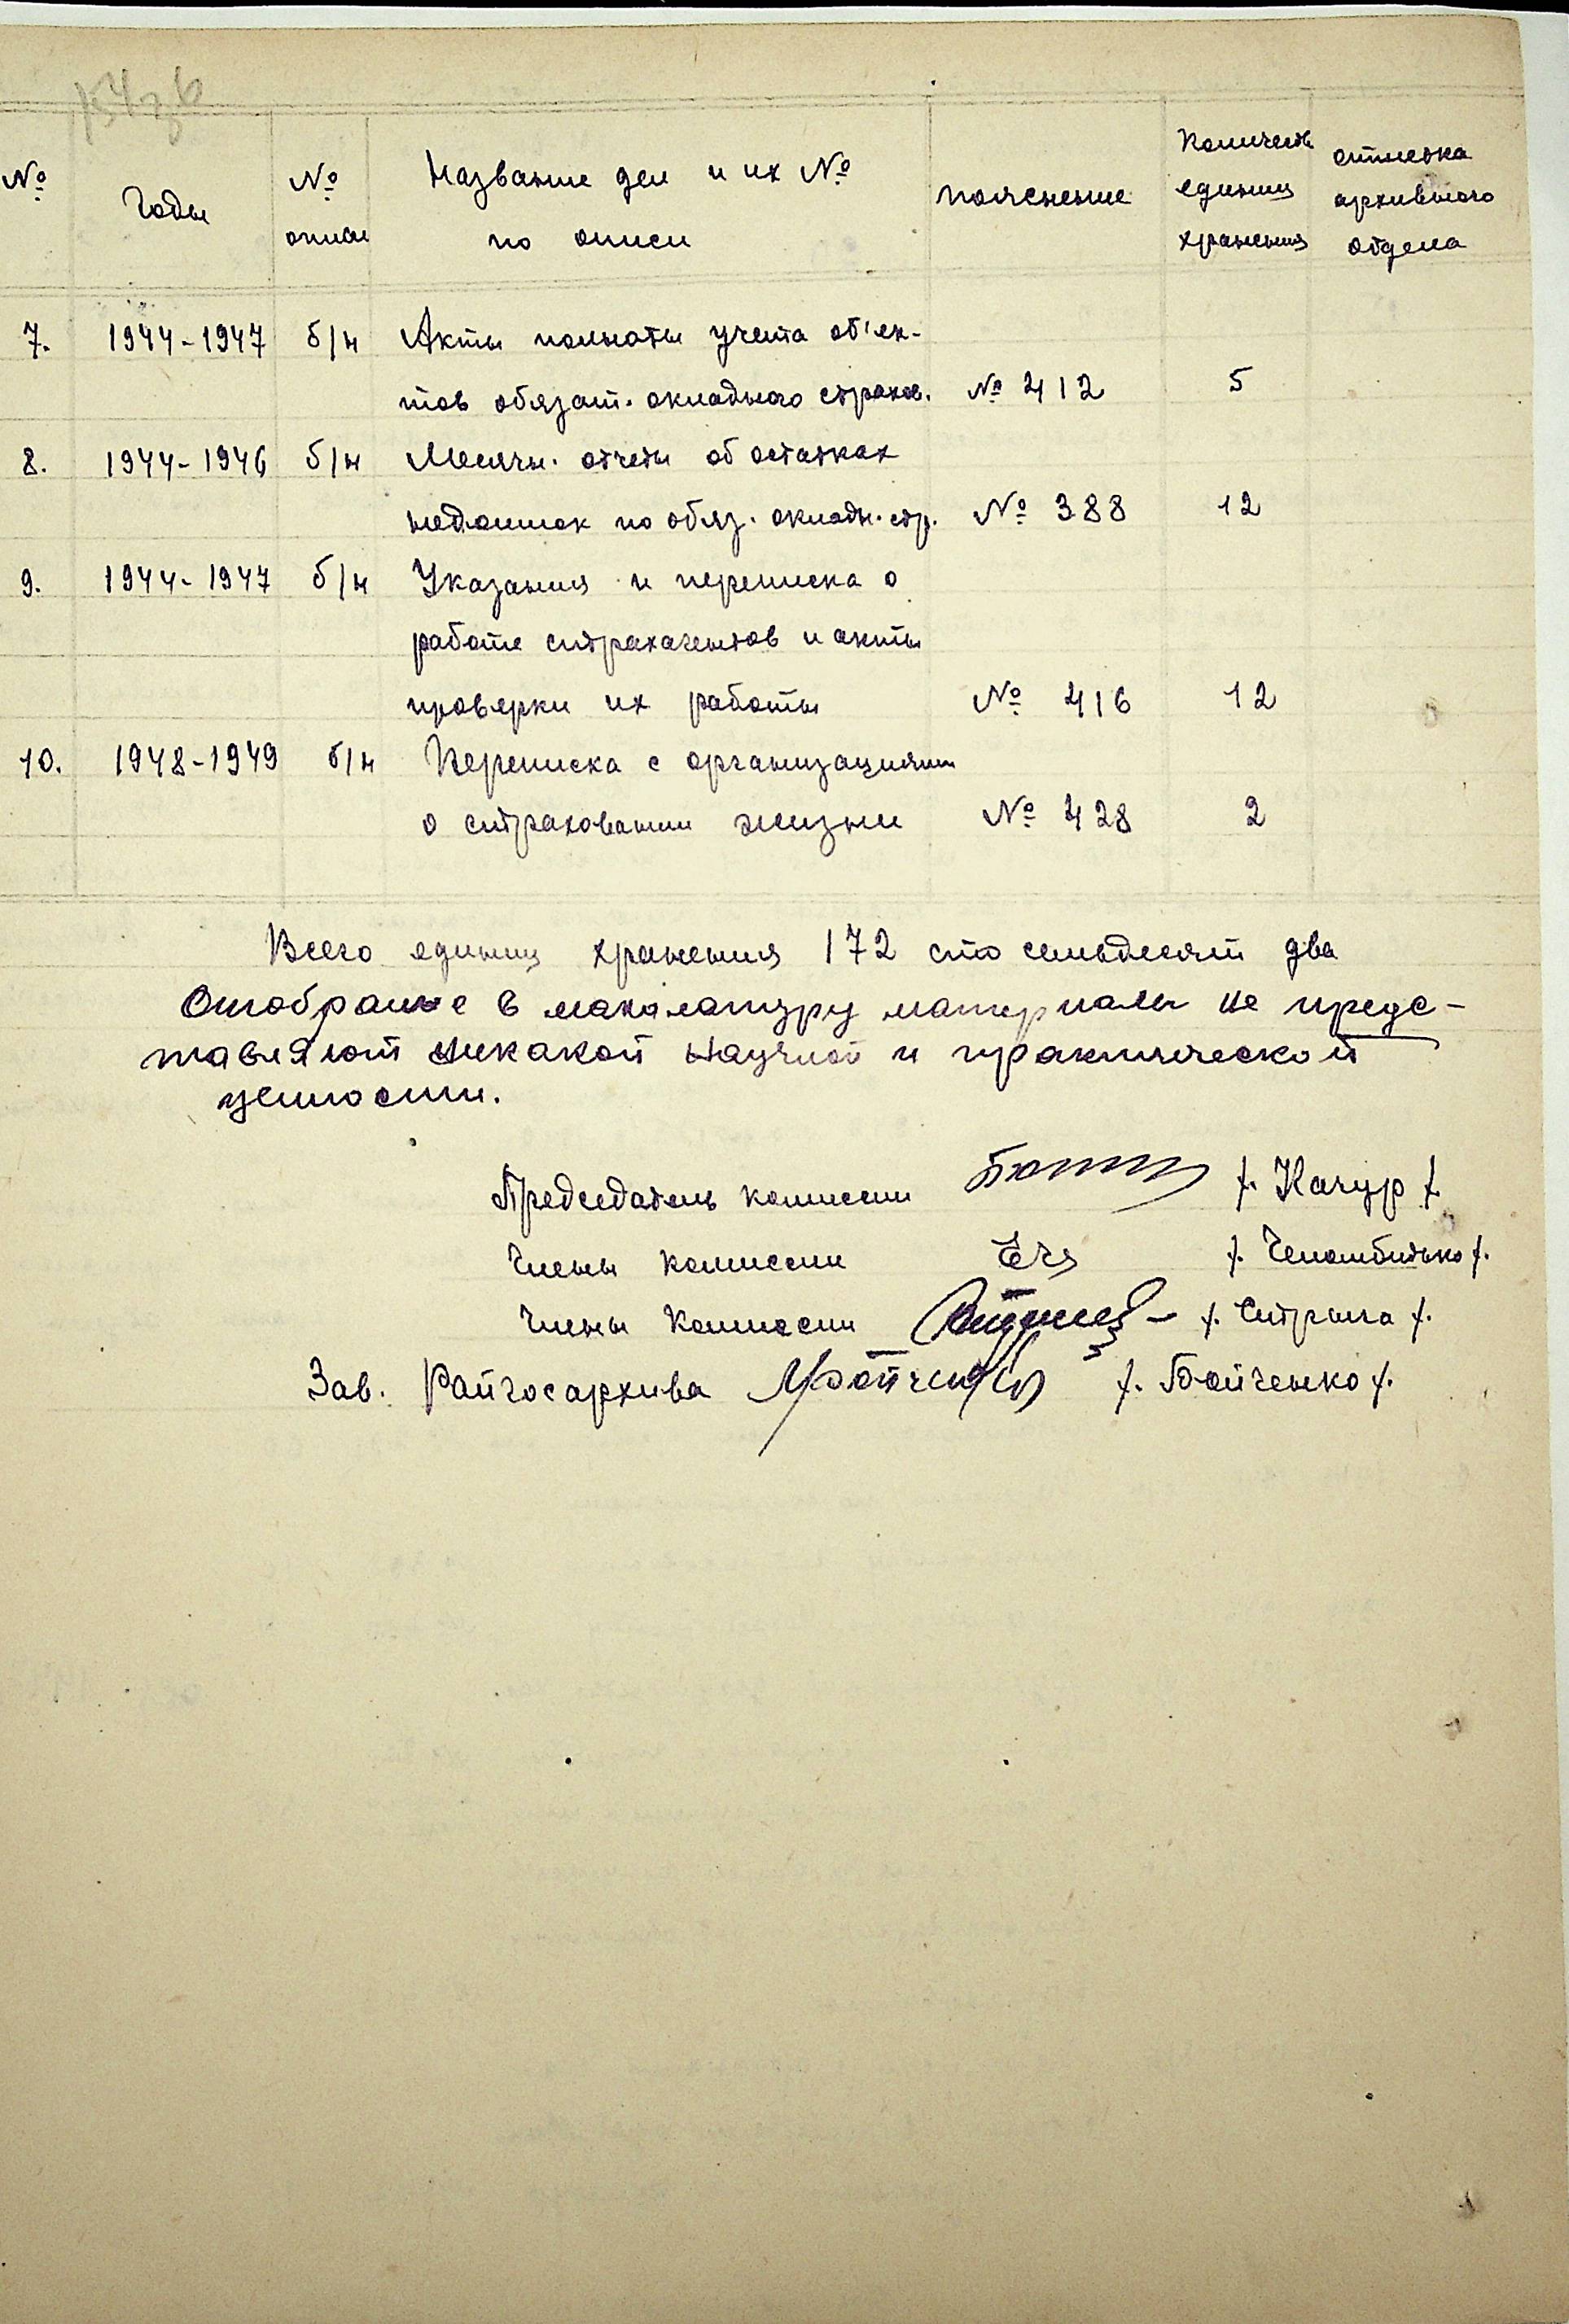 № Годы № описи Название дел и их № по описи пояснение Количеств единиц хранения отметка архивного отдела
7. 1944-1947 б/н Акты полноты учета об'ек-
тов обязат. окладного страхов. № 412 5
8. 1944-1946 б/н Месячн. отчеты об остатках
недоимок по обяз. окладн. стр. № 388 12
9. 1944-1947 б/н Указания и переписка о
работе страхагентов и акты
проверки их работы № 416 12
10. 1948-1949 б/н Переписка с организациями
о страховании жизни № 428 2
Всего единиц хранения 172 сто семьдесят два
Отобраные в макалатуру материалы не предс-
тавляют никакой научной и практической
ценности.
Председатель комиссии /. Качур /.
Члены комиссии /.
Члены комиссии /. Стрыга /.
Зав. Райгосархива /. Бойченко /.